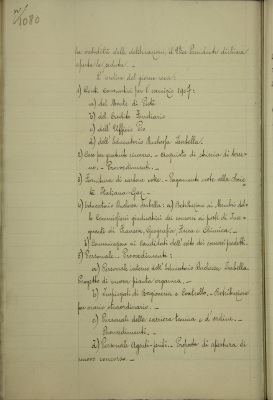 N° 1080
la validità delle deliberazioni, il Vice Presidente dichiara
aperta la seduta. —
L'ordine del giorno reca:
1) Conti Consuntivi per l'esercizio 1907:
a) del Monte di Pietà
b) del Credito Fondiario
c) dell'Ufficio Pio
d) dell'Educatorio Duchessa Isabella.
2) Case per gratuito ricovero, e acquisto di striscia di terre-
no. — Provvedimenti. —
3) Fornitura di carbone coke. — Pagamenti note alla Socie-
tà Italiana-Gaz. —
4) Educatorio Duchessa Isabella: a) Retribuzioni ai Membri del-
le Commissioni giudicatrici dei concorsi ai posti di Inse-
gnanti di Francese, Geografia, Fisica e Chimica. —
b) Comunicazione ai Candidati dell'esito dei concorsi predetti.
5) Personale. — Provvedimenti:
a) Personale interno dell'Educatorio Duchessa Isabella.
Progetto di nuova pianta organica. —
b) Impiegati di Ragioneria e Controllo. — Retribuzione
per orario straordinario. —
c) Personale della carriera tecnica e d'ordine. —
Provvedimenti. —
d) Personale Agenti-periti. — Proposta di apertura di
nuovo concorso. —